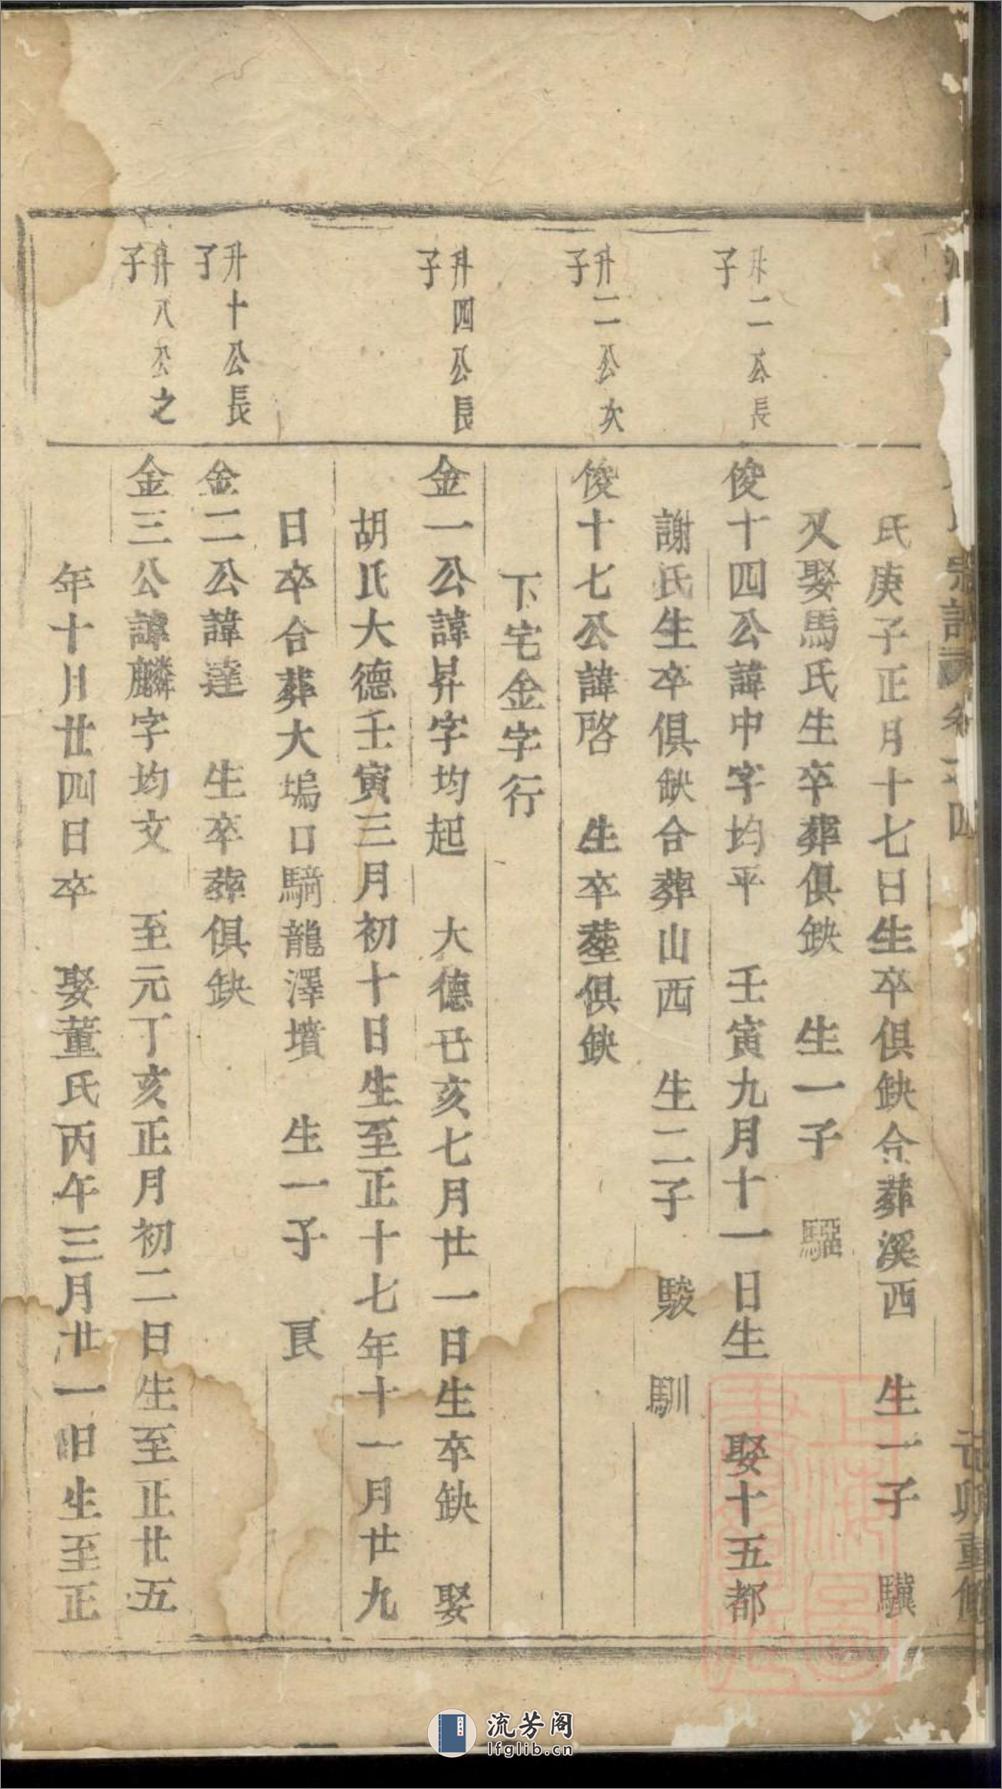 宗譜 卷之四
己卯重修
氏庚子正月十七日生卒俱缺合葬溪西 生一子 驥
又娶馬氏生卒葬俱缺 生一子 騮
升二公長子
俊十四公諱中字均平 壬寅九月十一日生 娶十五都
謝氏生卒俱缺合葬山西 生二子 駿 馴
升二公次子
俊十七公諱啓 生卒塟俱缺
下宅金字行
升四公長子
金一公諱昇字均起 大德己亥七月廿一日生卒缺 娶
胡氏大德壬寅三月初十日生至正十七年十一月廿九
日卒合葬大塢口騎龍澤墳 生一子 良
升十公長子
金二公諱達 生卒葬俱缺
升八公之子
金三公諱麟字均文 至元丁亥正月初二日生至正廿五
年十月廿四日卒 娶董氏丙午三月廿一日生至正
流芳阁
lfglib.cn